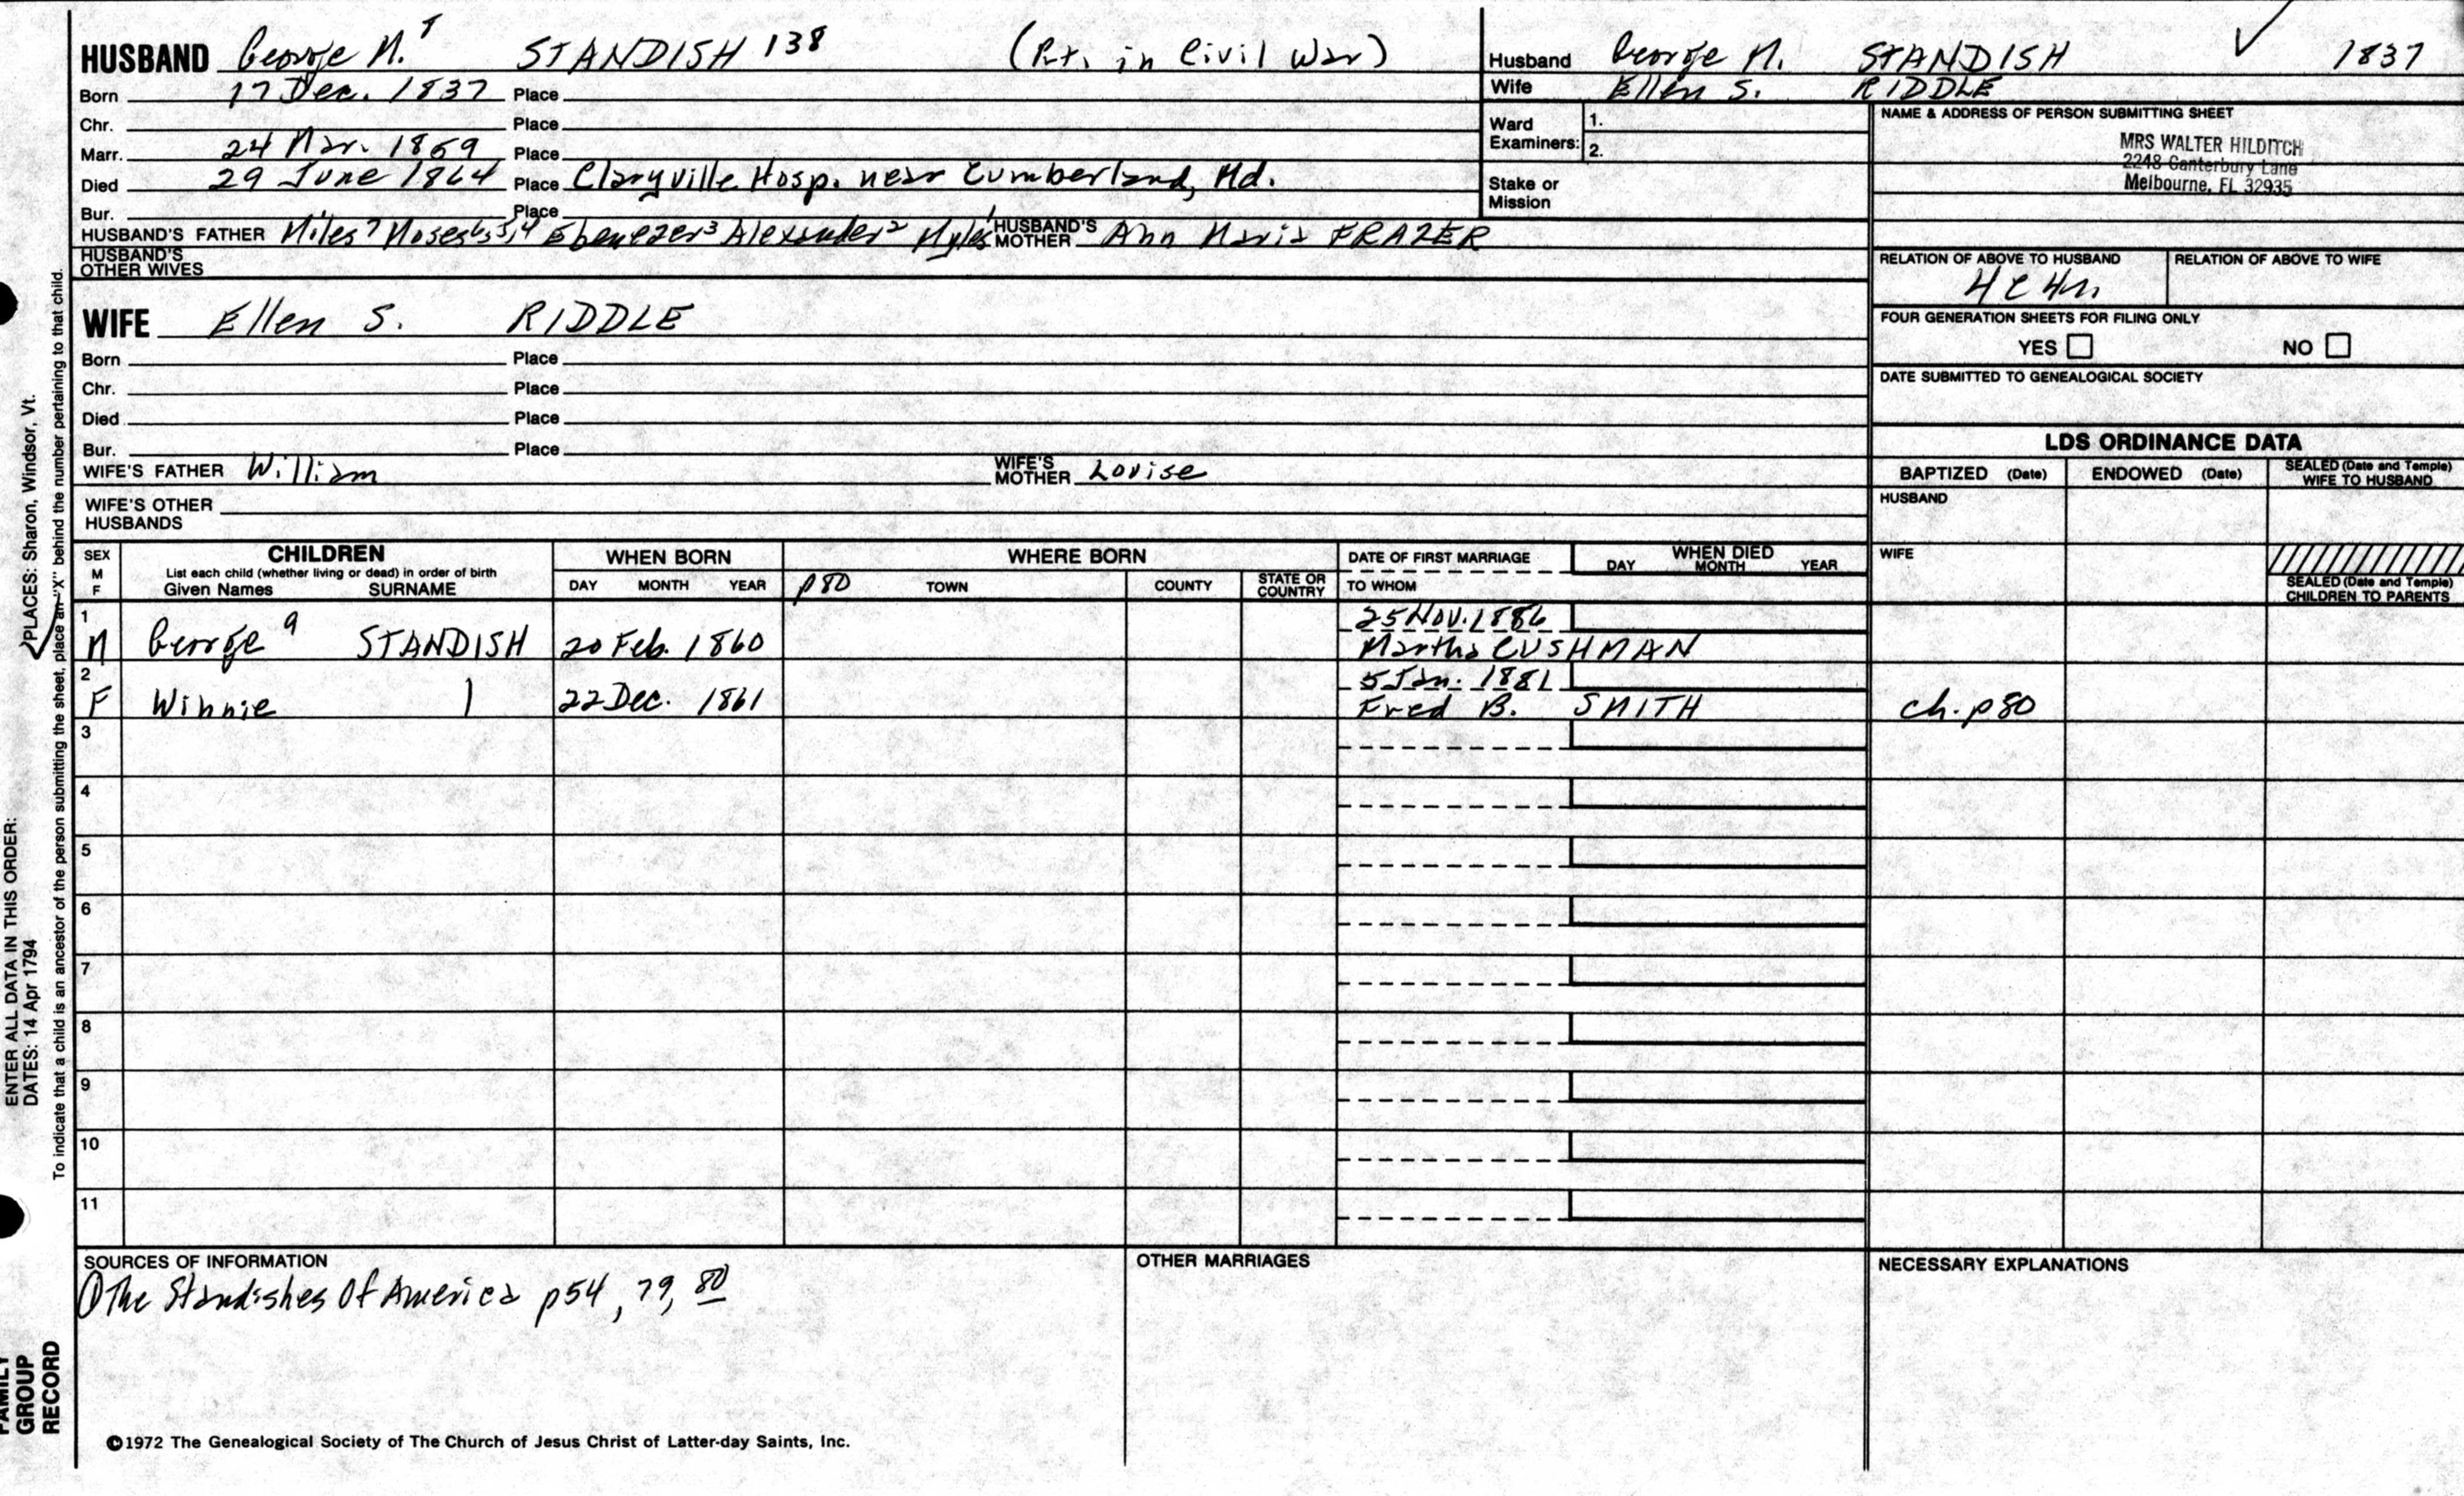 HUSBAND George M.8 STANDISH 138 (Pvt. in Civil War)
Born 17 Dec. 1837 Place
Chr. Place
Marr. 24 Mar. 1859 Place
Died 29 June 1864 Place Claryville Hosp. near Cumberland, Md.
Bur. Place
HUSBAND'S FATHER Miles7 Moses6,5,4 Ebenezer3 Alexander2 Myles1 HUSBAND'S MOTHER Ann Maria FRAZER
HUSBAND'S OTHER WIVES
Husband George M. STANDISH ✓ 1837
Wife Ellen S. RIDDLE
Ward Examiners: 1.
2.
Stake or Mission
NAME & ADDRESS OF PERSON SUBMITTING SHEET
MRS WALTER HILDITCH
2248 Canterbury Lane
Melbourne, FL 32935
RELATION OF ABOVE TO HUSBAND RELATION OF ABOVE TO WIFE
4c4r
FOUR GENERATION SHEETS FOR FILING ONLY
YES NO
DATE SUBMITTED TO GENEALOGICAL SOCIETY
WIFE Ellen S. RIDDLE
Born Place
Chr. Place
Died Place
Bur. Place
WIFE'S FATHER William WIFE'S MOTHER Louise
WIFE'S OTHER HUSBANDS
LDS ORDINANCE DATA
BAPTIZED (Date) ENDOWED (Date) SEALED (Date and Temple) WIFE TO HUSBAND
HUSBAND
WIFE
SEALED (Date and Temple) CHILDREN TO PARENTS
SEX M F CHILDREN WHEN BORN WHERE BORN DATE OF FIRST MARRIAGE WHEN DIED
List each child (whether living or dead) in order of birth DAY MONTH YEAR p80 TOWN COUNTY STATE OR COUNTRY TO WHOM DAY MONTH YEAR
Given Names SURNAME
1 25 Nov. 1886
M George9 STANDISH 20 Feb. 1860 Martha CUSHMAN
2 5 Jan. 1881
F Winnie | 22 Dec. 1861 Fred B. SMITH ch. p80
3
4
5
6
7
8
9
10
11
SOURCES OF INFORMATION OTHER MARRIAGES NECESSARY EXPLANATIONS
① The Standishes Of America p54, 79, 80
©1972 The Genealogical Society of The Church of Jesus Christ of Latter-day Saints, Inc.
ENTER ALL DATA IN THIS ORDER:
DATES: 14 Apr 1794
PLACES: Sharon, Windsor, Vt.
To indicate that a child is an ancestor of the person submitting the sheet, place an "X" behind the number pertaining to that child.
FAMILY
GROUP
RECORD